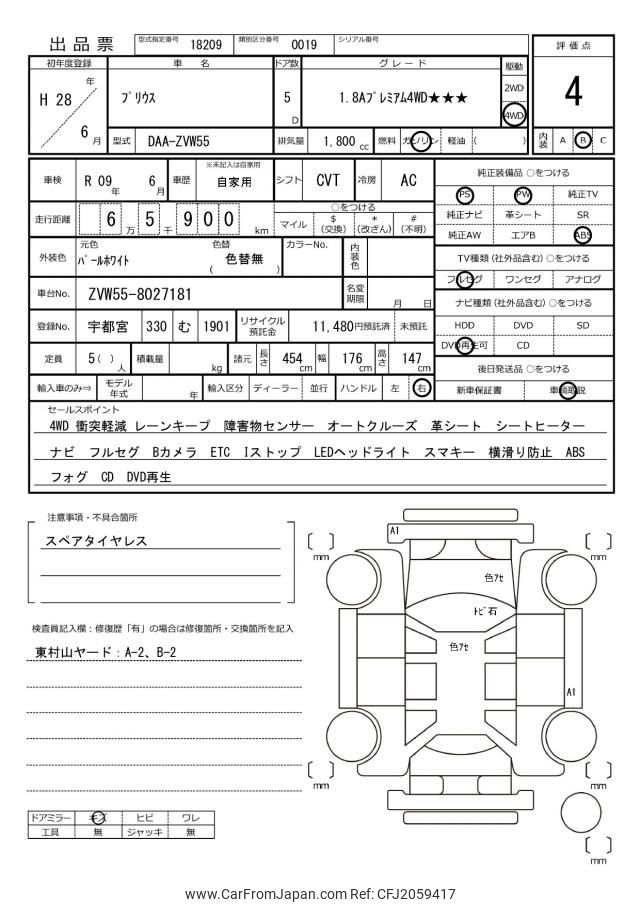 出品票 型式指定番号 18209 類別区分番号 0019 シリアル番号
評価点
4
初年度登録 車名 ドア数 グレード 駆動
H 28 年 6 月 プリウス 5 D 1.8Aプレミアム4WD★★★ 2WD 4WD
型式 DAA-ZVW55 排気量 1,800 cc 燃料 ガソリン 軽油 ( ) 内装 A B C
車検 R 09 年 6 月 車歴 ※未記入は自家用 自家用 シフト CVT 冷房 AC
走行距離 6 5 万 9 千 0 0 km
○をつける
マイル $ (交換) * (改ざん) # (不明)
外装色 元色 パールホワイト 色替 ( 色替無 ) カラーNo. 内装色
車台No. ZVW55-8027181 名変期限 月 日
登録No. 宇都宮 330 む 1901 リサイクル預託金 11,480円預託済 未預託
定員 5 ( ) 人 積載量 kg 諸元 長さ 454 cm 幅 176 cm 高さ 147 cm
輸入車のみ⇒ モデル年式 年 輸入区分 ディーラー 並行 ハンドル 左 右
純正装備品 ○をつける
PS PW 純正TV
純正ナビ 革シート SR
純正AW エアB ABS
TV種類 (社外品含む) ○をつける
フルセグ ワンセグ アナログ
ナビ種類 (社外品含む) ○をつける
HDD DVD SD
DVD再生可 CD
後日発送品 ○をつける
新車保証書 車輌取説
セールスポイント
4WD 衝突軽減 レーンキープ 障害物センサー オートクルーズ 革シート シートヒーター
ナビ フルセグ Bカメラ ETC Iストップ LEDヘッドライト スマキー 横滑り防止 ABS
フォグ CD DVD再生
注意事項・不具合箇所
スペアタイヤレス
検査員記入欄：修復歴「有」の場合は修復箇所・交換箇所を記入
東村山ヤード：A-2、B-2
A1
色アセ
トビ石
色アセ
A1
mm
mm
mm
mm
mm
ドアミラー キズ ヒビ ワレ
工具 無 ジャッキ 無
www.CarFromJapan.com Ref: CFJ2059417